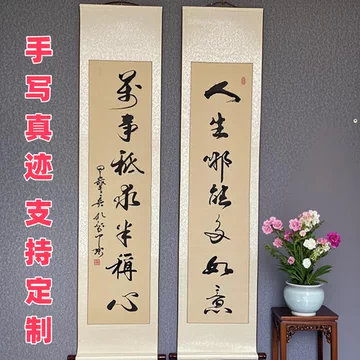 手写真迹 支持定制
人生哪能多如意
万事祗求半称心